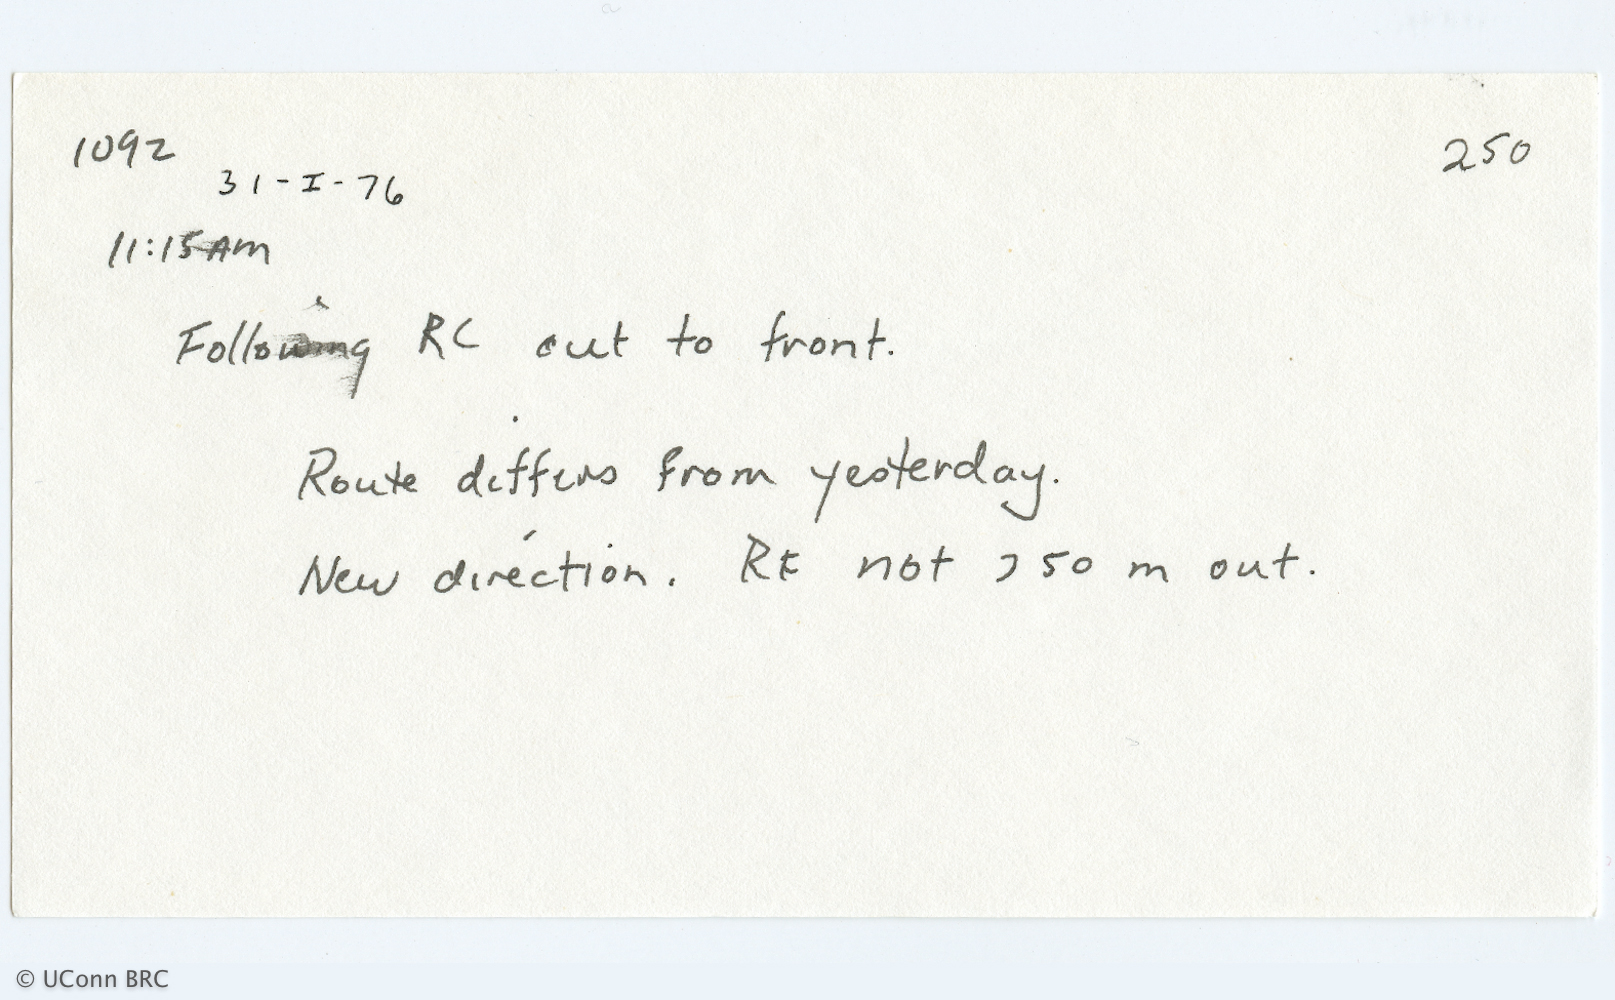 1092
250
31-I-76
11:15AM
Following RC out to front.
Route differs from yesterday.
New direction. RF not >50 m out.
© UConn BRC